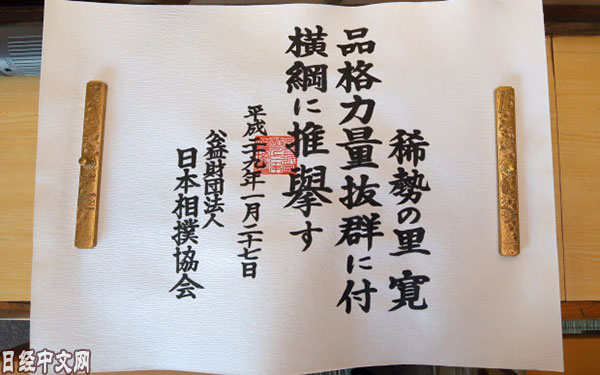 稀勢の里 寛
品格力量抜群に付
横綱に推擧す
平成二十九年一月二十七日
公益財団法人
日本相撲協会
日经中文网